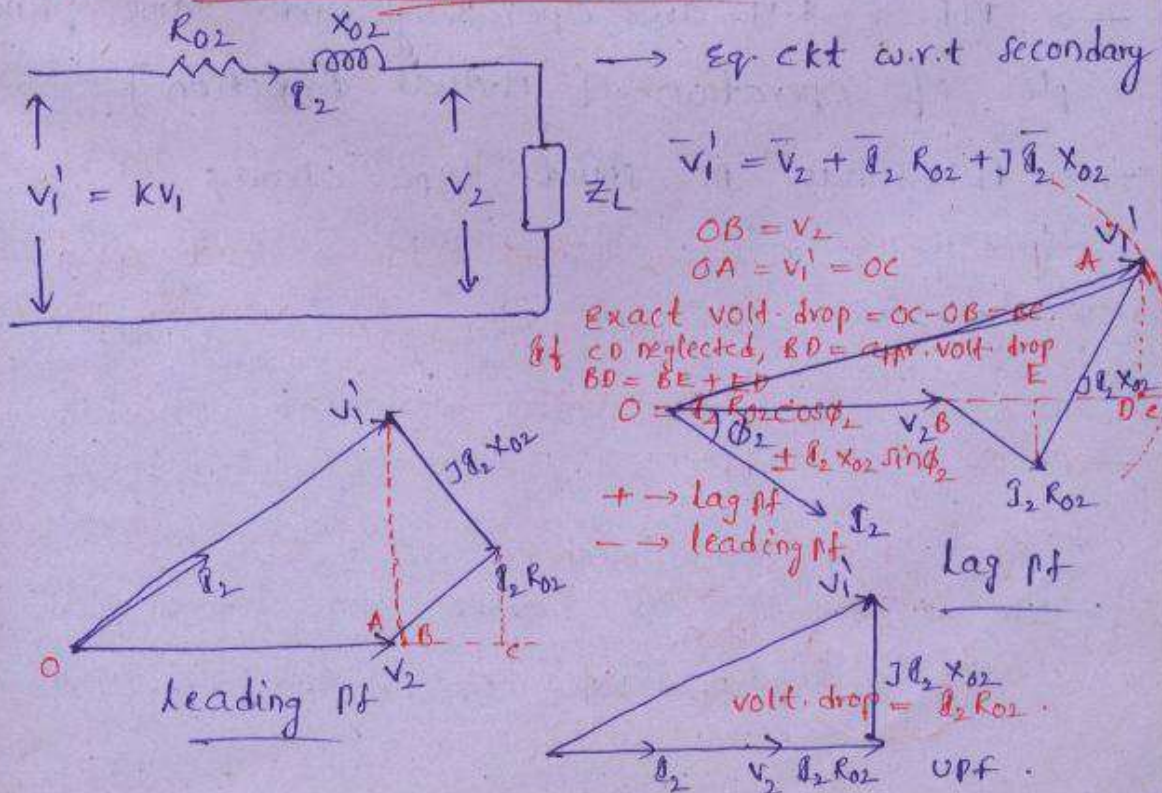 R02 X02
I2
→ Eq. ckt w.r.t secondary
V1' = KV1
V2
ZL
V̄1' = V̄2 + Ī2 R02 + JĪ2 X02
OB = V2
OA = V1' = OC
Exact volt. drop = OC-OB = BC.
If CD neglected, BD = appr. volt. drop
BD = BE + ED
= I2 R02 cosφ2
± I2 X02 sinφ2
+ → Lag pf
- → leading pf
V1'
A
E
JI2 X02
O
φ2
V2 B
D C
I2 R02
I2
Lag pf
V1'
JI2 X02
I2
I2 R02
O
A B C
V2
Leading Pf
V1'
JI2 X02
volt. drop = I2 R02.
I2 V2 I2 R02 UPf.